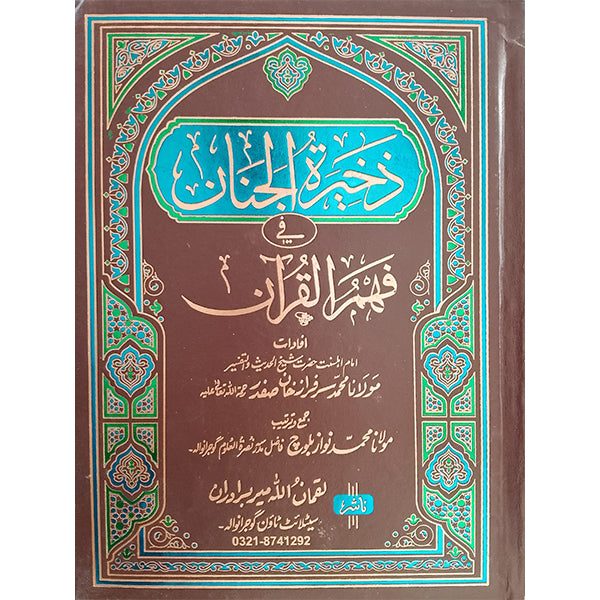 ذخيرة الجنان
في
فهم القرآن
افادات
امام اہلسنت حضرت شیخ الحدیث والتفسیر
مولانا محمد سرفراز خان صفدر رحمۃ اللہ تعالیٰ علیہ
جمع و ترتیب
مولانا محمد نواز بلوچ فاضل مدرسہ نصرۃ العلوم گوجرانوالہ۔
ناشر
لقمان اللہ میر برادران
سیٹلائٹ ٹاؤن گوجرانوالہ۔
0321-8741292